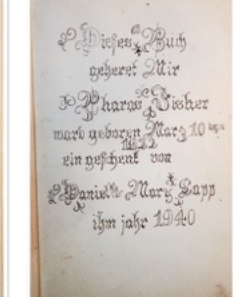 Dieses Buch
geheret Mir
Pharas Fisher
warb geboren Marz 10
1922
ein geschenk von
Daniel Mary Lapp
ihm jahr 1940